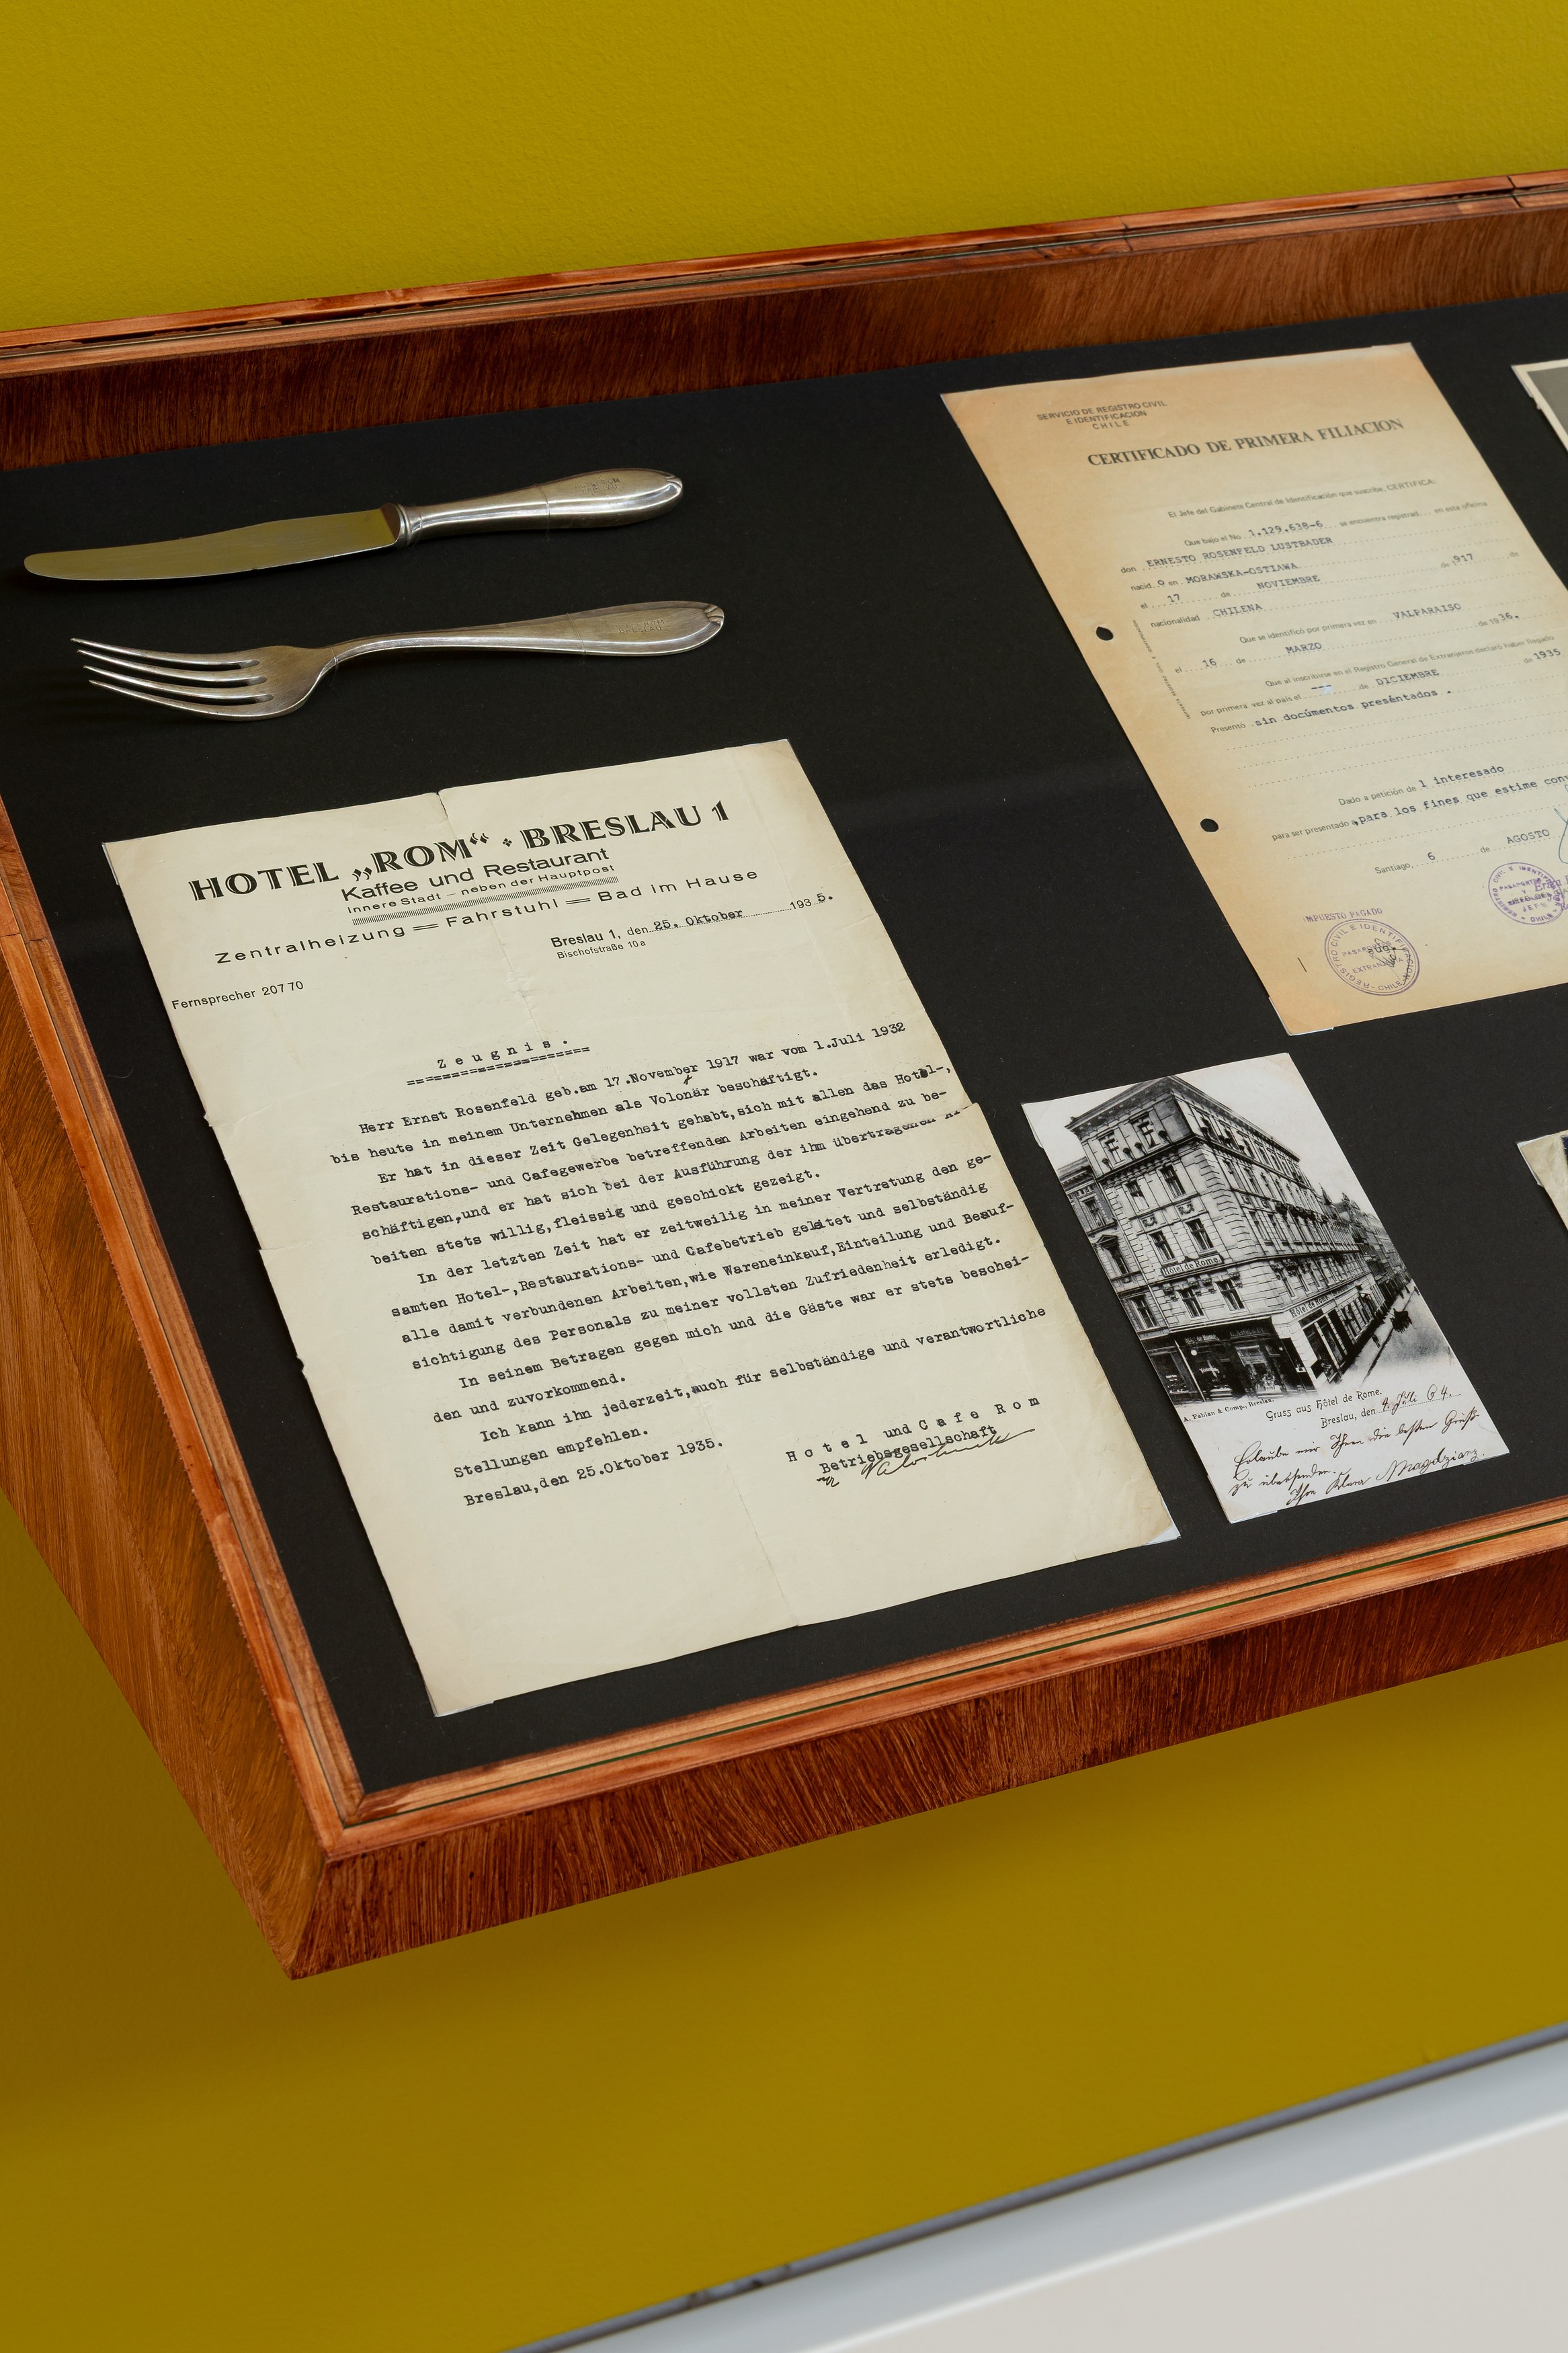 HOTEL „ROM“ ⁘ BRESLAU 1
Kaffee und Restaurant
Innere Stadt — neben der Hauptpost
Zentralheizung = Fahrstuhl = Bad im Hause
Breslau 1, den 25. Oktober 1935.
Bischofstraße 10a
Fernsprecher 207 70
Z e u g n i s .
====================
Herr Ernst Rosenfeld geb.am 17.November 1917 war vom 1.Juli 1932
bis heute in meinem Unternehmen als Volonär beschäftigt.
Er hat in dieser Zeit Gelegenheit gehabt,sich mit allen das Hotel-,
Restaurations- und Cafegewerbe betreffenden Arbeiten eingehend zu be-
schäftigen,und er hat sich bei der Ausführung der ihm übertragenen Ar-
beiten stets willig,fleissig und geschickt gezeigt.
In der letzten Zeit hat er zeitweilig in meiner Vertretung den ge-
samten Hotel-,Restaurations- und Cafebetrieb geleitet und selbständig
alle damit verbundenen Arbeiten,wie Wareneinkauf,Einteilung und Beauf-
sichtigung des Personals zu meiner vollsten Zufriedenheit erledigt.
In seinem Betragen gegen mich und die Gäste war er stets beschei-
den und zuvorkommend.
Ich kann ihn jederzeit,auch für selbständige und verantwortliche
Stellungen empfehlen.
Breslau,den 25.Oktober 1935.
H o t e l und C a f e R o m
Betriebsgesellschaft
SERVICIO DE REGISTRO CIVIL
E IDENTIFICACION
CHILE
CERTIFICADO DE PRIMERA FILIACION
El Jefe del Gabinete Central de Identificación que suscribe, CERTIFICA:
Que bajo el No 1.129.638-6 se encuentra registrad... en esta oficina
don ERNESTO ROSENFELD LUSTBADER
nacid o en MORAWSKA-OSTIAWA
el 17 de NOVIEMBRE de 1917 de
nacionalidad CHILENA
Que se identificó por primera vez en VALPARAISO
el 16 de MARZO de 1936.
Que al inscribirse en el Registro General de Extranjeros declaró haber llegado
por primera vez al país el --- de DICIEMBRE de 1935
Presentó sin docúmentos preséntados .
Dado a petición de l interesado
para ser presentado a para los fines que estime con
Santiago, 6 de AGOSTO
IMPUESTO PAGADO
REGISTRO CIVIL E IDENTIFICACION
CHILE
Hôtel de Rome
Hôtel de Rome
A. Fabian & Comp., Breslau.
Gruss aus Hôtel de Rome.
Breslau, den 4. Juli 04.
Erlaube mir Ihnen die besten Grüße
zu übersenden.
Ihre Klara Magdziarz.